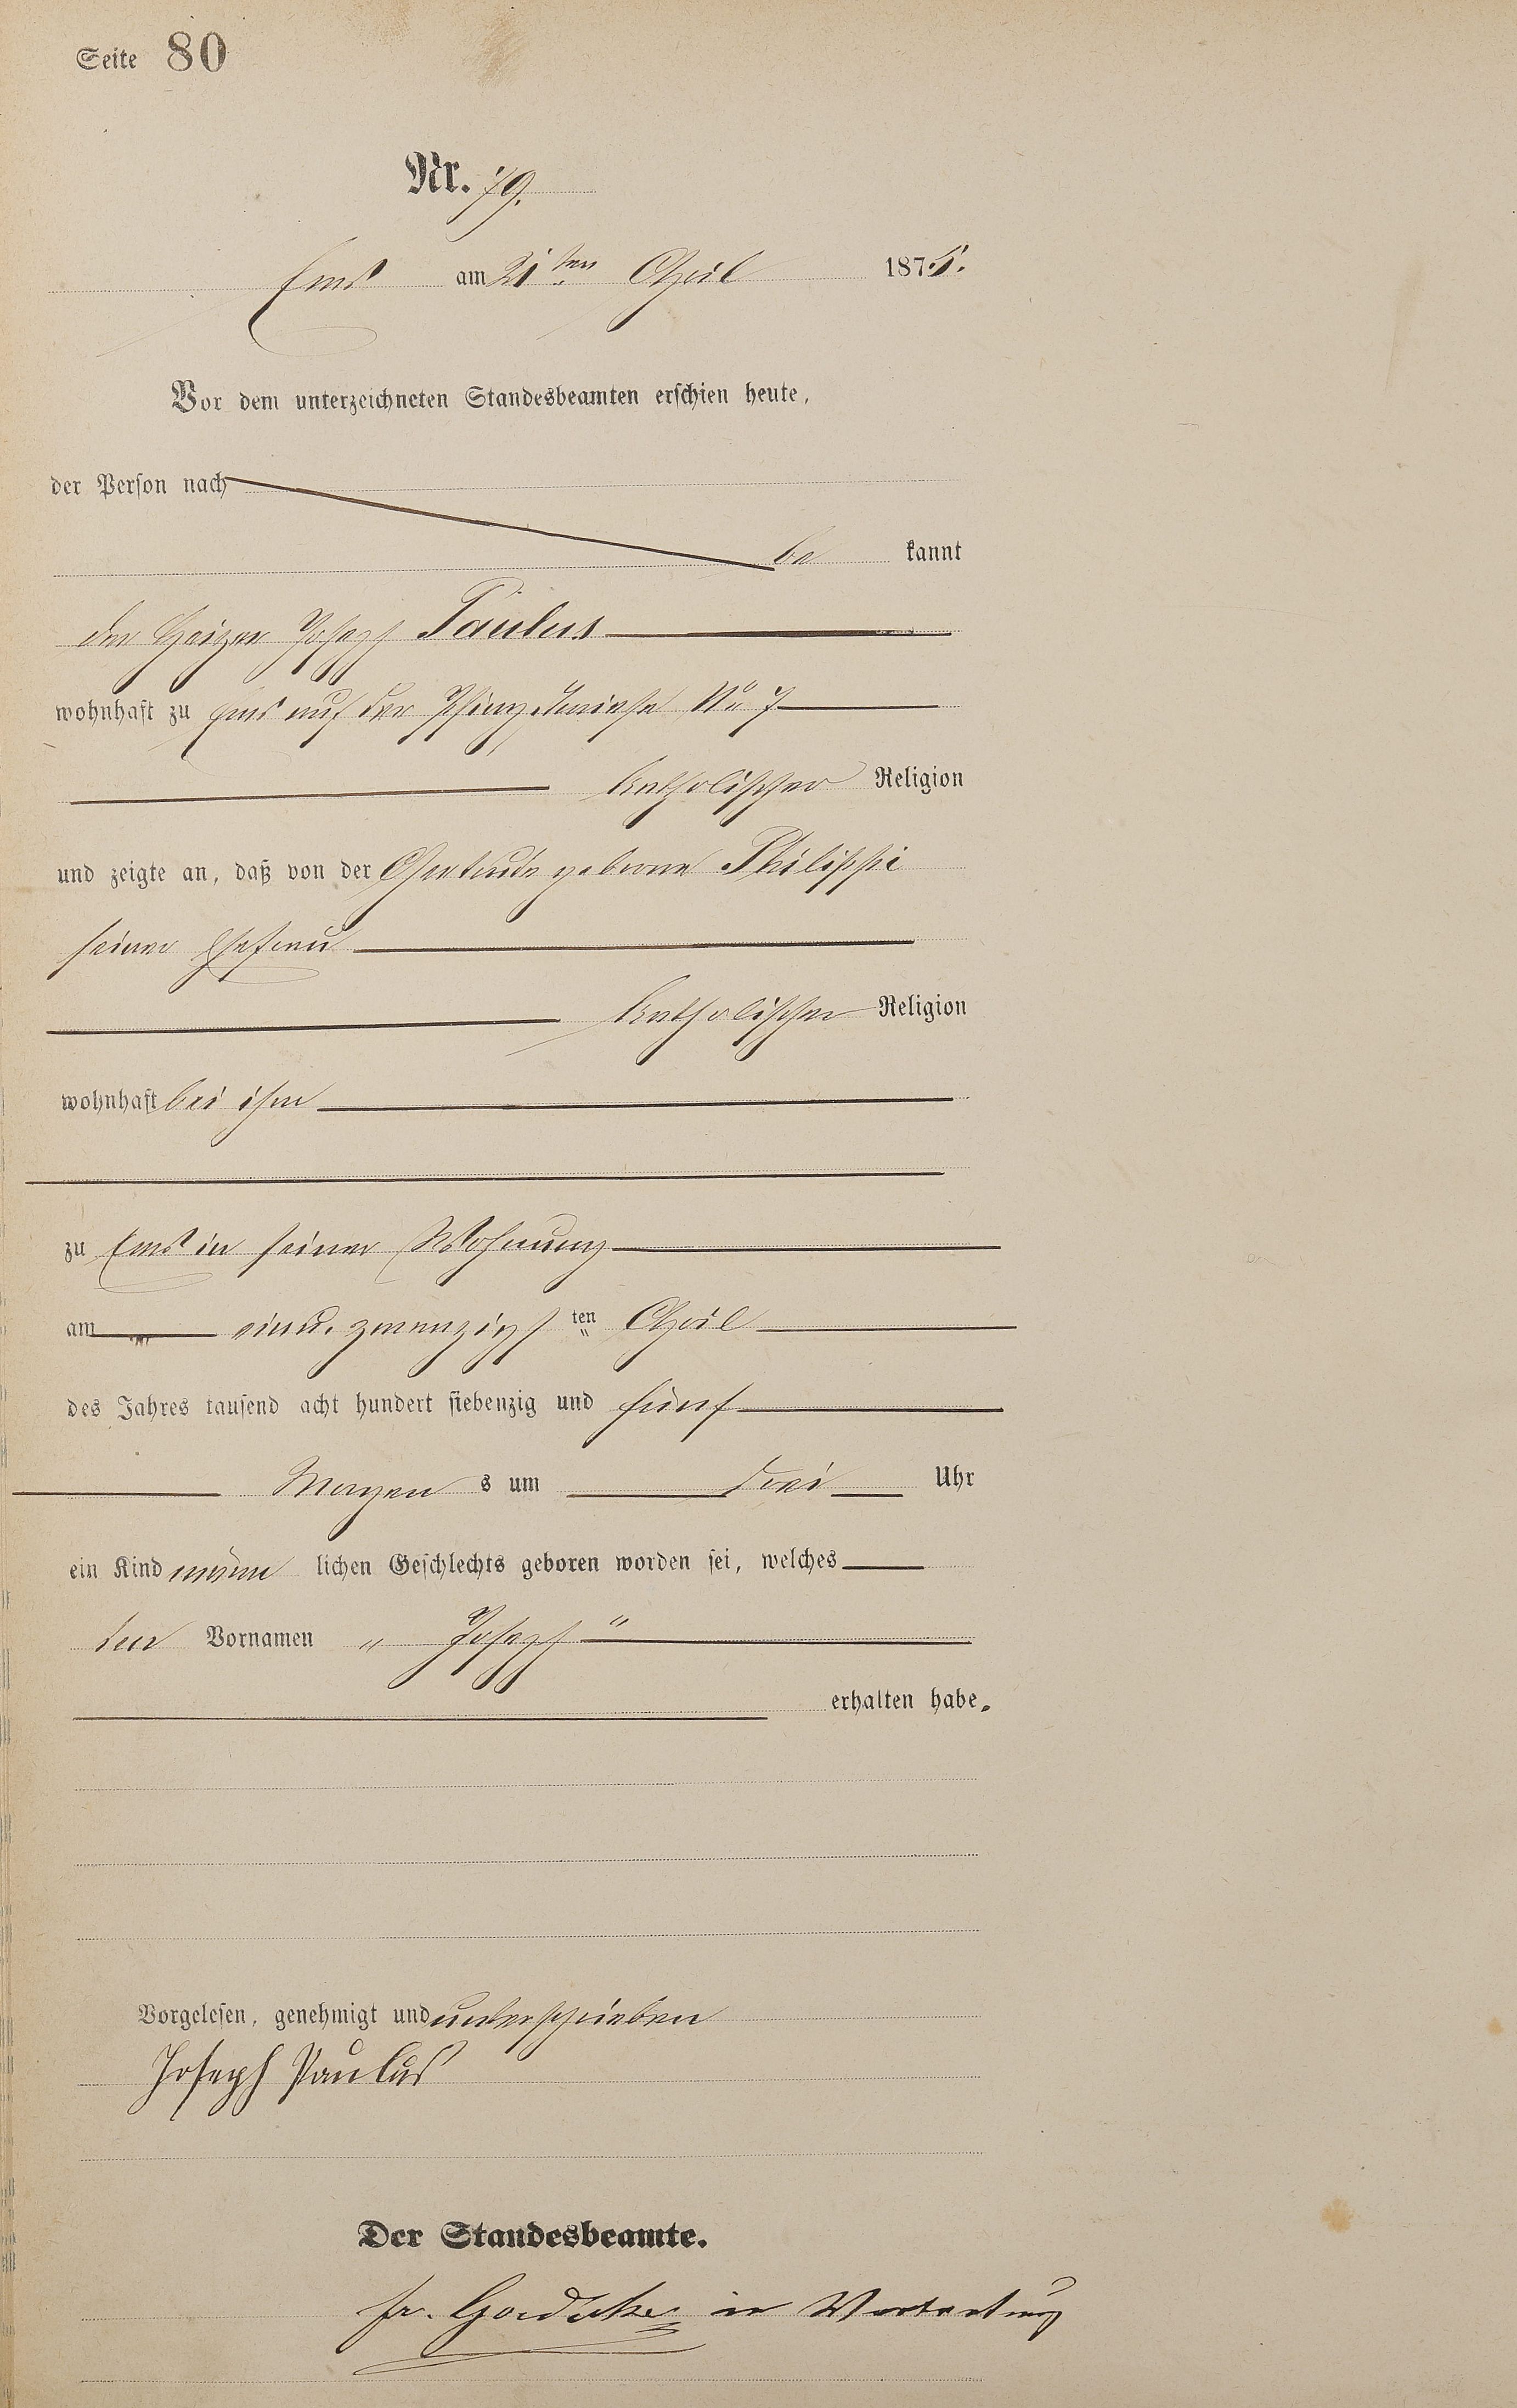 Seite 80
Nr. 79.
Ems am 21ten April 1875.
Vor dem unterzeichneten Standesbeamten erschien heute,
der Person nach
be kannt
der Heizer Joseph Paulus
wohnhaft zu Ems auf der No 7
katholischer Religion
und zeigte an, daß von der Gertrude geborne Philippi
seiner Ehefrau
katholischer Religion
wohnhaft bei ihm
zu Ems in seiner Wohnung
am einu. zwanzigsten April
des Jahres tausend acht hundert siebenzig und fünf
Morgen s um drei Uhr
ein Kind männ lichen Geschlechts geboren worden sei, welches
den Vornamen „ Joseph "
erhalten habe.
Vorgelesen, genehmigt und unterschrieben
Joseph Paulus
Der Standesbeamte.
in Vertretung